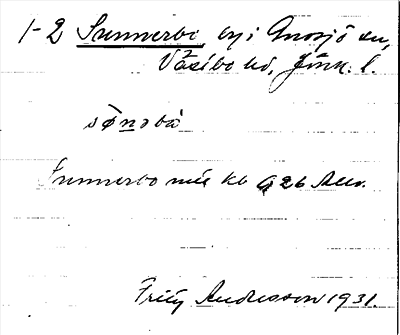 1-2 Sunnerbo, by i Gnosjö sn,
Västbo hd, Jönk. l.
sònəbå
Sunnerbo mtl kb 926 Allm.
Fritz Andersson 1931.